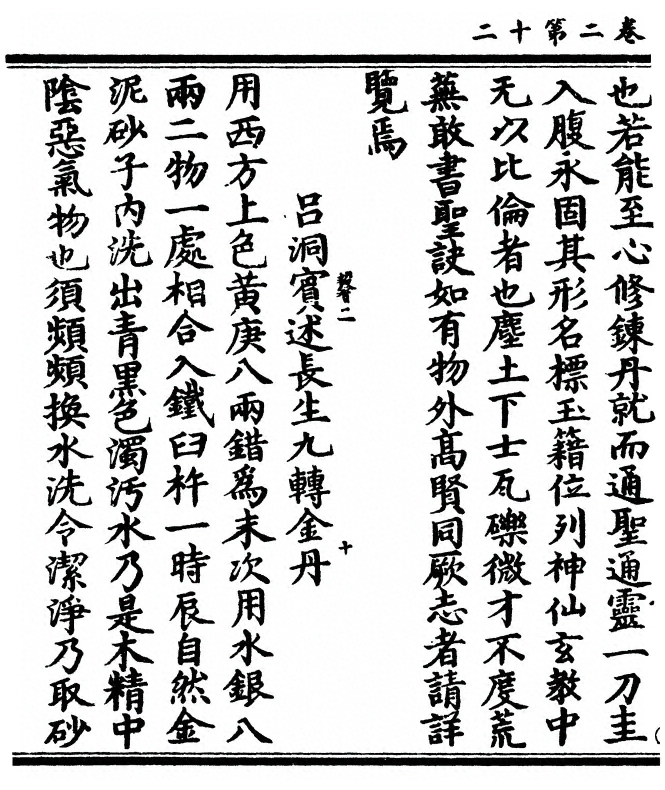 卷二第十二
也若能至心修鍊丹就而通聖通靈一刀圭
入腹永固其形名標玉籍位列神仙玄教中
无以比倫者也塵土下士瓦礫微才不度荒
蕪敢書聖訣如有物外高賢同厥志者請詳
覽焉
呂洞賓述長生九轉金丹
用西方上色黃庚八兩錯爲末次用水銀八
兩二物一處相合入鐵臼杵一時辰自然金
泥砂子內洗出青黑色濁污水乃是木精中
陰惡氣物也須頻頻換水洗令潔淨乃取砂